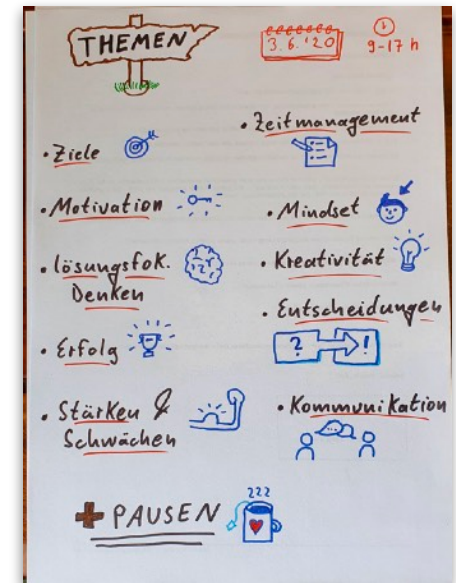 THEMEN
3.6.'20
9-17 h
• Ziele
• Motivation
• lösungsfok.
Denken
• Erfolg
• Stärken &
Schwächen
• Zeitmanagement
• Mindset
• Kreativität
• Entscheidungen
? !
• Kommunikation
+ PAUSEN